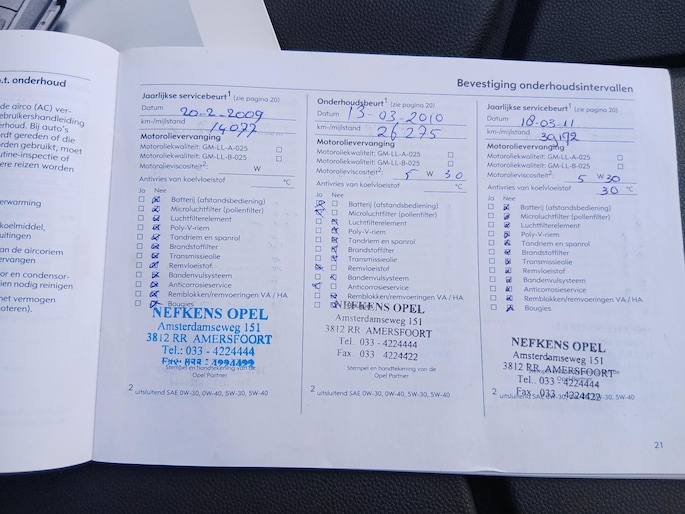 .t. onderhoud
de airco (AC) ver-
ebruikershandleiding
rhoud. Bij auto's
rdt gereden of die
orden gebruikt, moet
utine-inspectie of
ere reizen worden
erwarming
koelmiddel,
uitingen
an de aircoriem
ervangen
or en condensor-
ien nodig reinigen
net vermogen
oteren).
Bevestiging onderhoudsintervallen
Jaarlijkse servicebeurt¹ (zie pagina 20)
Datum 20-2-2009
km-/mijlstand 14077
Motorolievervanging
Motoroliekwaliteit: GM-LL-A-025
Motoroliekwaliteit: GM-LL-B-025
Motorolieviscositeit²: W
Antivries van koelvloeistof °C
Ja Nee
Batterij (afstandsbediening)
Microluchtfilter (pollenfilter)
Luchtfilterelement
Poly-V-riem
Tandriem en spanrol
Brandstoffilter
Transmissieolie
Remvloeistof
Bandenvulsysteem
Anticorrosieservice
Remblokken/remvoeringen VA / HA
Bougies
NEFKENS OPEL
Amsterdamseweg 151
3812 RR AMERSFOORT
Tel.: 033 - 4224444
Stempel en handtekening van de
Opel Partner
² uitsluitend SAE 0W-30, 0W-40, 5W-30, 5W-40
Onderhoudsbeurt¹ (zie pagina 20)
Datum 13-03-2010
km-/mijlstand 26275
Motorolievervanging
Motoroliekwaliteit: GM-LL-A-025
Motoroliekwaliteit: GM-LL-B-025
Motorolieviscositeit²: 5 W 30
Antivries van koelvloeistof °C
Ja Nee
Batterij (afstandsbediening)
Microluchtfilter (pollenfilter)
Luchtfilterelement
Poly-V-riem
Tandriem en spanrol
Brandstoffilter
Transmissieolie
Remvloeistof
Bandenvulsysteem
Anticorrosieservice
Remblokken/remvoeringen VA / HA
NEFKENS OPEL
Amsterdamseweg 151
3812 RR AMERSFOORT
Tel. 033 - 4224444
Fax 033 - 4224422
Stempel en handtekening van de
Opel Partner
² uitsluitend SAE 0W-30, 0W-40, 5W-30, 5W-40
Jaarlijkse servicebeurt¹ (zie pagina 20)
Datum 18-03-11
km-/mijlstand 39192
Motorolievervanging
Motoroliekwaliteit: GM-LL-A-025
Motoroliekwaliteit: GM-LL-B-025
Motorolieviscositeit²: 5 W 30
Antivries van koelvloeistof 30 °C
Ja Nee
Batterij (afstandsbediening)
Microluchtfilter (pollenfilter)
Luchtfilterelement
Poly-V-riem
Tandriem en spanrol
Brandstoffilter
Transmissieolie
Remvloeistof
Bandenvulsysteem
Anticorrosieservice
Remblokken/remvoeringen VA / HA
Bougies
NEFKENS OPEL
Amsterdamseweg 151
3812 RR AMERSFOORT
Tel. 033 - 4224444
Fax 033 - 4224422
² uitsluitend SAE 0W-30, 0W-40, 5W-30, 5W-40
21